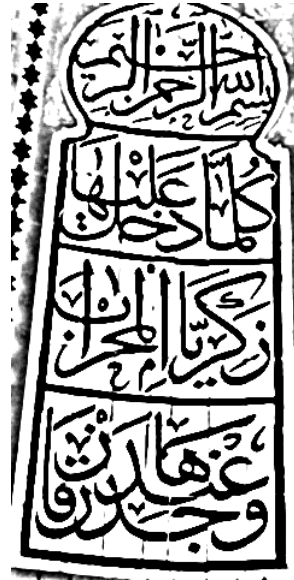 بسم الله الرحمن الرحيم
كُلَّمَا دَخَلَ عَلَيْهَا
زَكَرِيَّا الْمِحْرَابَ
وَجَدَ عِنْدَهَا رِزْقًا